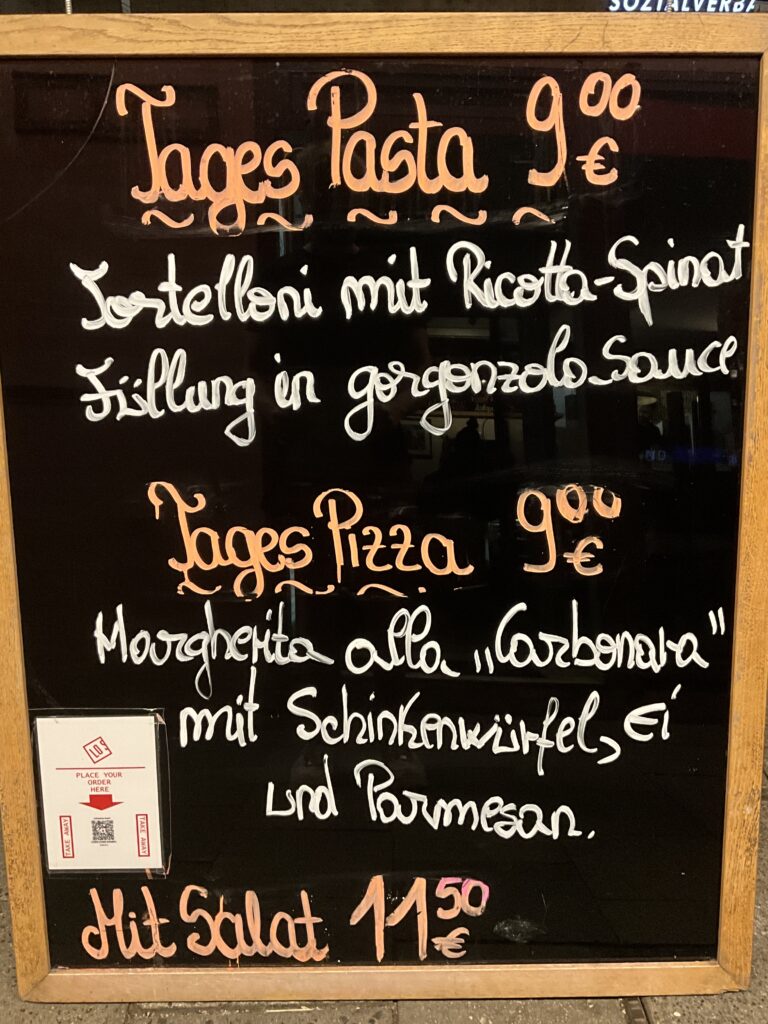 SOZIALVERBA
Tages Pasta 9 00 €
Tortelloni mit Ricotta-Spinat
Füllung in gorgonzola-Sauce
Tages Pizza 9 00 €
Margherita alla „Carbonara”
mit Schinkenwürfel, Ei
und Parmesan.
LOS
PLACE YOUR
ORDER
HERE
TAKE AWAY
TAKE AWAY
Mit Salat 11 50 €